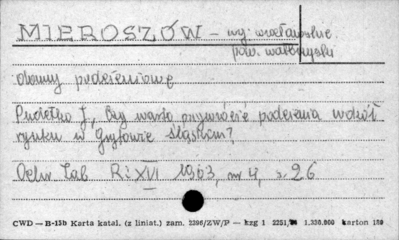 MIEROSZÓW - wj. wrocławskie
pow. wałbrzyski
domy podcieniowe
Puciełko J., Czy warto przywrócić podcienia wokół
rynku w Gryfowie Śląskim?
Ochr. Zab. R. XVI 1963, nr 4, s. 26
CWD — B-15b Karta katal. (z liniat.) zam. 2396/ZW/P — kzg 1 2251, 1.330.000 karton 180